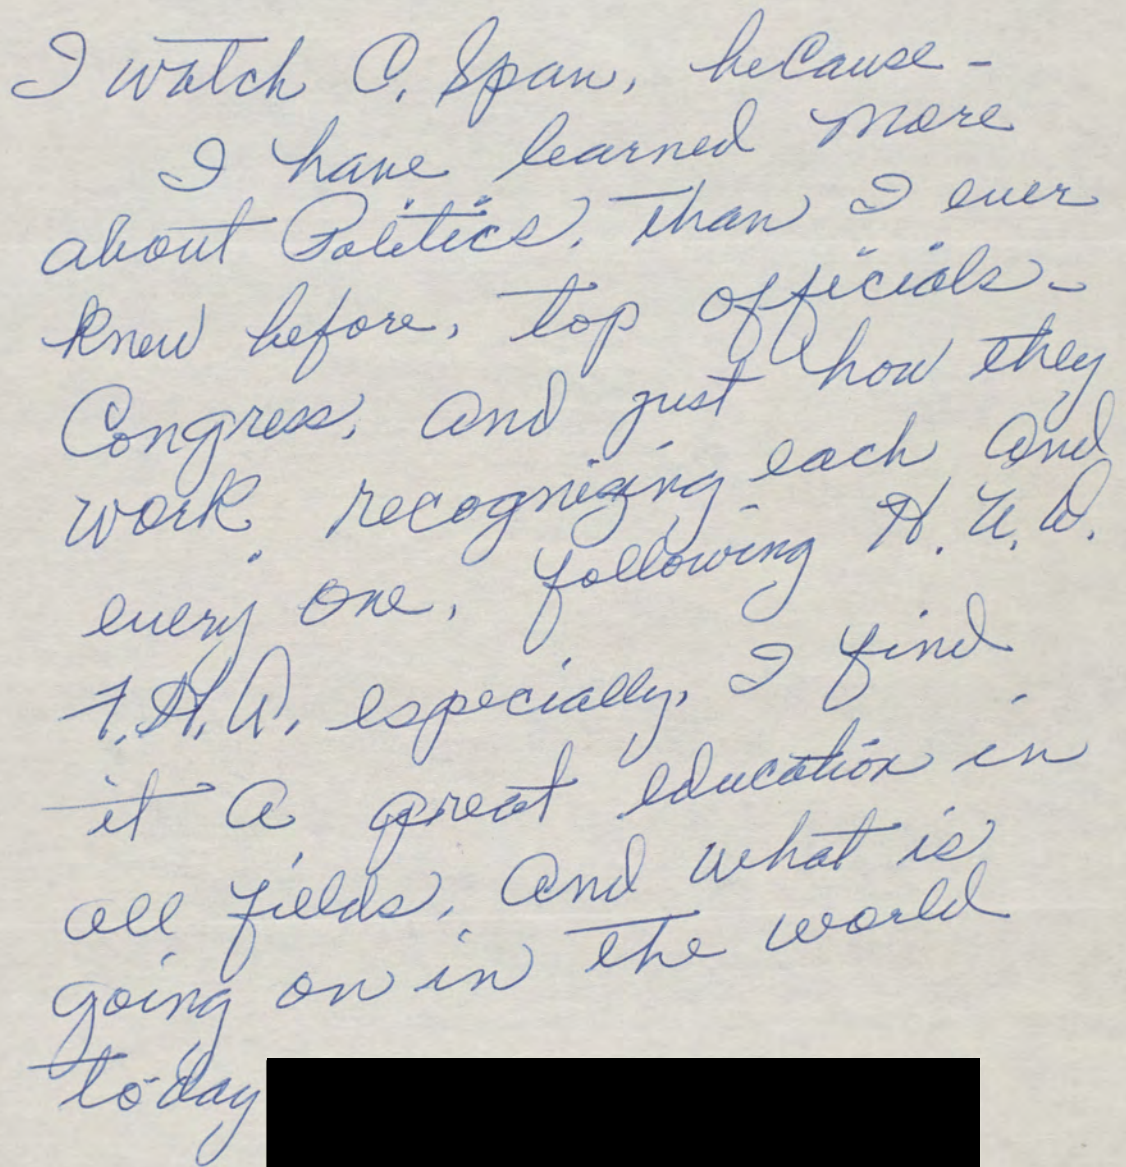 I watch C. Span, because -
I have learned more
about Politics. than I ever
knew before, top officials -
Congress, and just how they
work. recognizing each and
every one, following H. U. D.
F. H. A. especially, I find
it a great education in
all fields, and what is
going on in the world
to-day